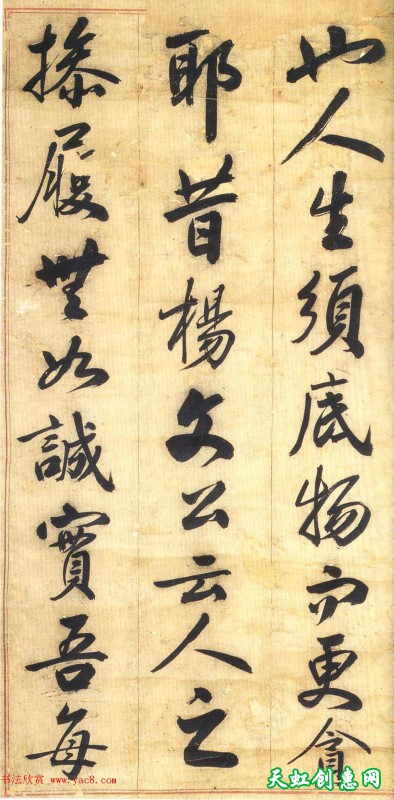 也人生須底物而更貪
耶昔楊文公云人之
操履無如誠實吾每
书法欣赏 www.yac8.com
天虹创惠网